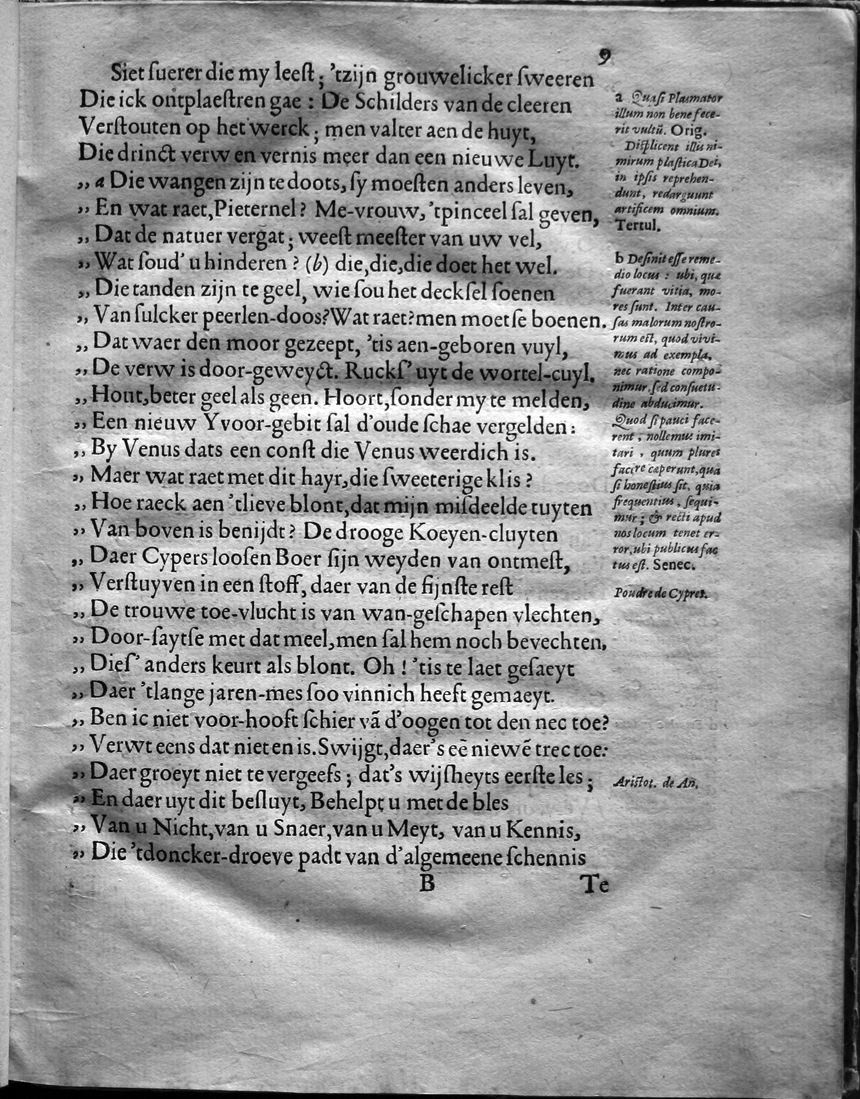 9
Siet suerer die my leest; 'tzijn grouwelicker sweeren
Die ick ontplaestren gae : De Schilders van de cleeren
Verstouten op het werck; men valter aen de huyt,
Die drinct verw en vernis meer dan een nieuwe Luyt.
,, a Die wangen zijn te doots, sy moesten anders leven,
,, En wat raet, Pieternel? Me-vrouw, 'tpinceel sal geven,
,, Dat de natuer vergat; weest meester van uw vel,
,, Wat soud' u hinderen ? (b) die, die, die doet het wel.
,, Die tanden zijn te geel, wie sou het decksel soenen
,, Van sulcker peerlen-doos? Wat raet? men moetse boenen.
,, Dat waer den moor gezeept, 'tis aen-geboren vuyl,
,, De verw is door-geweyct. Rucks' uyt de wortel-cuyl.
,, Hout, beter geel als geen. Hoort, sonder my te melden,
,, Een nieuw Yvoor-gebit sal d'oude schae vergelden:
,, By Venus dats een const die Venus weerdich is.
,, Maer wat raet met dit hayr, die sweeterige klis ?
,, Hoe raeck aen 'tlieve blont, dat mijn misdeelde tuyten
,, Van boven is benijdt ? De drooge Koeyen-cluyten
,, Daer Cypers loosen Boer sijn weyden van ontmest,
,, Verstuyven in een stoff, daer van de sijnste rest
,, De trouwe toe-vlucht is van wan-geschapen vlechten,
,, Door-saytse met dat meel, men sal hem noch bevechten,
,, Dies' anders keurt als blont. Oh ! 'tis te laet gesaeyt
,, Daer 'tlange jaren-mes soo vinnich heeft gemaeyt.
,, Ben ic niet voor-hooft schier vã d'oogen tot den nec toe?
,, Verwt eens dat niet en is. Swijgt, daer's eẽ niewẽ trec toe:
,, Daer groeyt niet te vergeefs; dat's wijsheyts eerste les;
,, En daer uyt dit besluyt, Behelpt u met de bles
,, Van u Nicht, van u Snaer, van u Meyt, van u Kennis,
,, Die 'tdoncker-droeve padt van d'algemeene schennis
B
Te
a Quasi Plasmator
illum non bene fece-
rit vultũ. Orig.
Displicent illis ni-
mirum plastica Dei,
in ipsis reprehen-
dunt, redarguunt
artificem omnium.
Tertul.
b Desinit esse reme-
dio locus : ubi, quæ
fuerant vitia, mo-
res sunt. Inter cau-
sas malorum nostro-
rum est, quod vivi-
mus ad exempla,
nec ratione compo-
nimur, sed consuetu-
dine abducimur.
Quod si pauci face-
rent, nollemus imi-
tari, quum plures
facere cæperunt, qua-
si honestius sit, quia
frequentius, sequi-
mur; & recti apud
nos locum tenet er-
ror, ubi publicus fac
tus est. Senec.
Poudre de Cypres.
Aristot. de An.